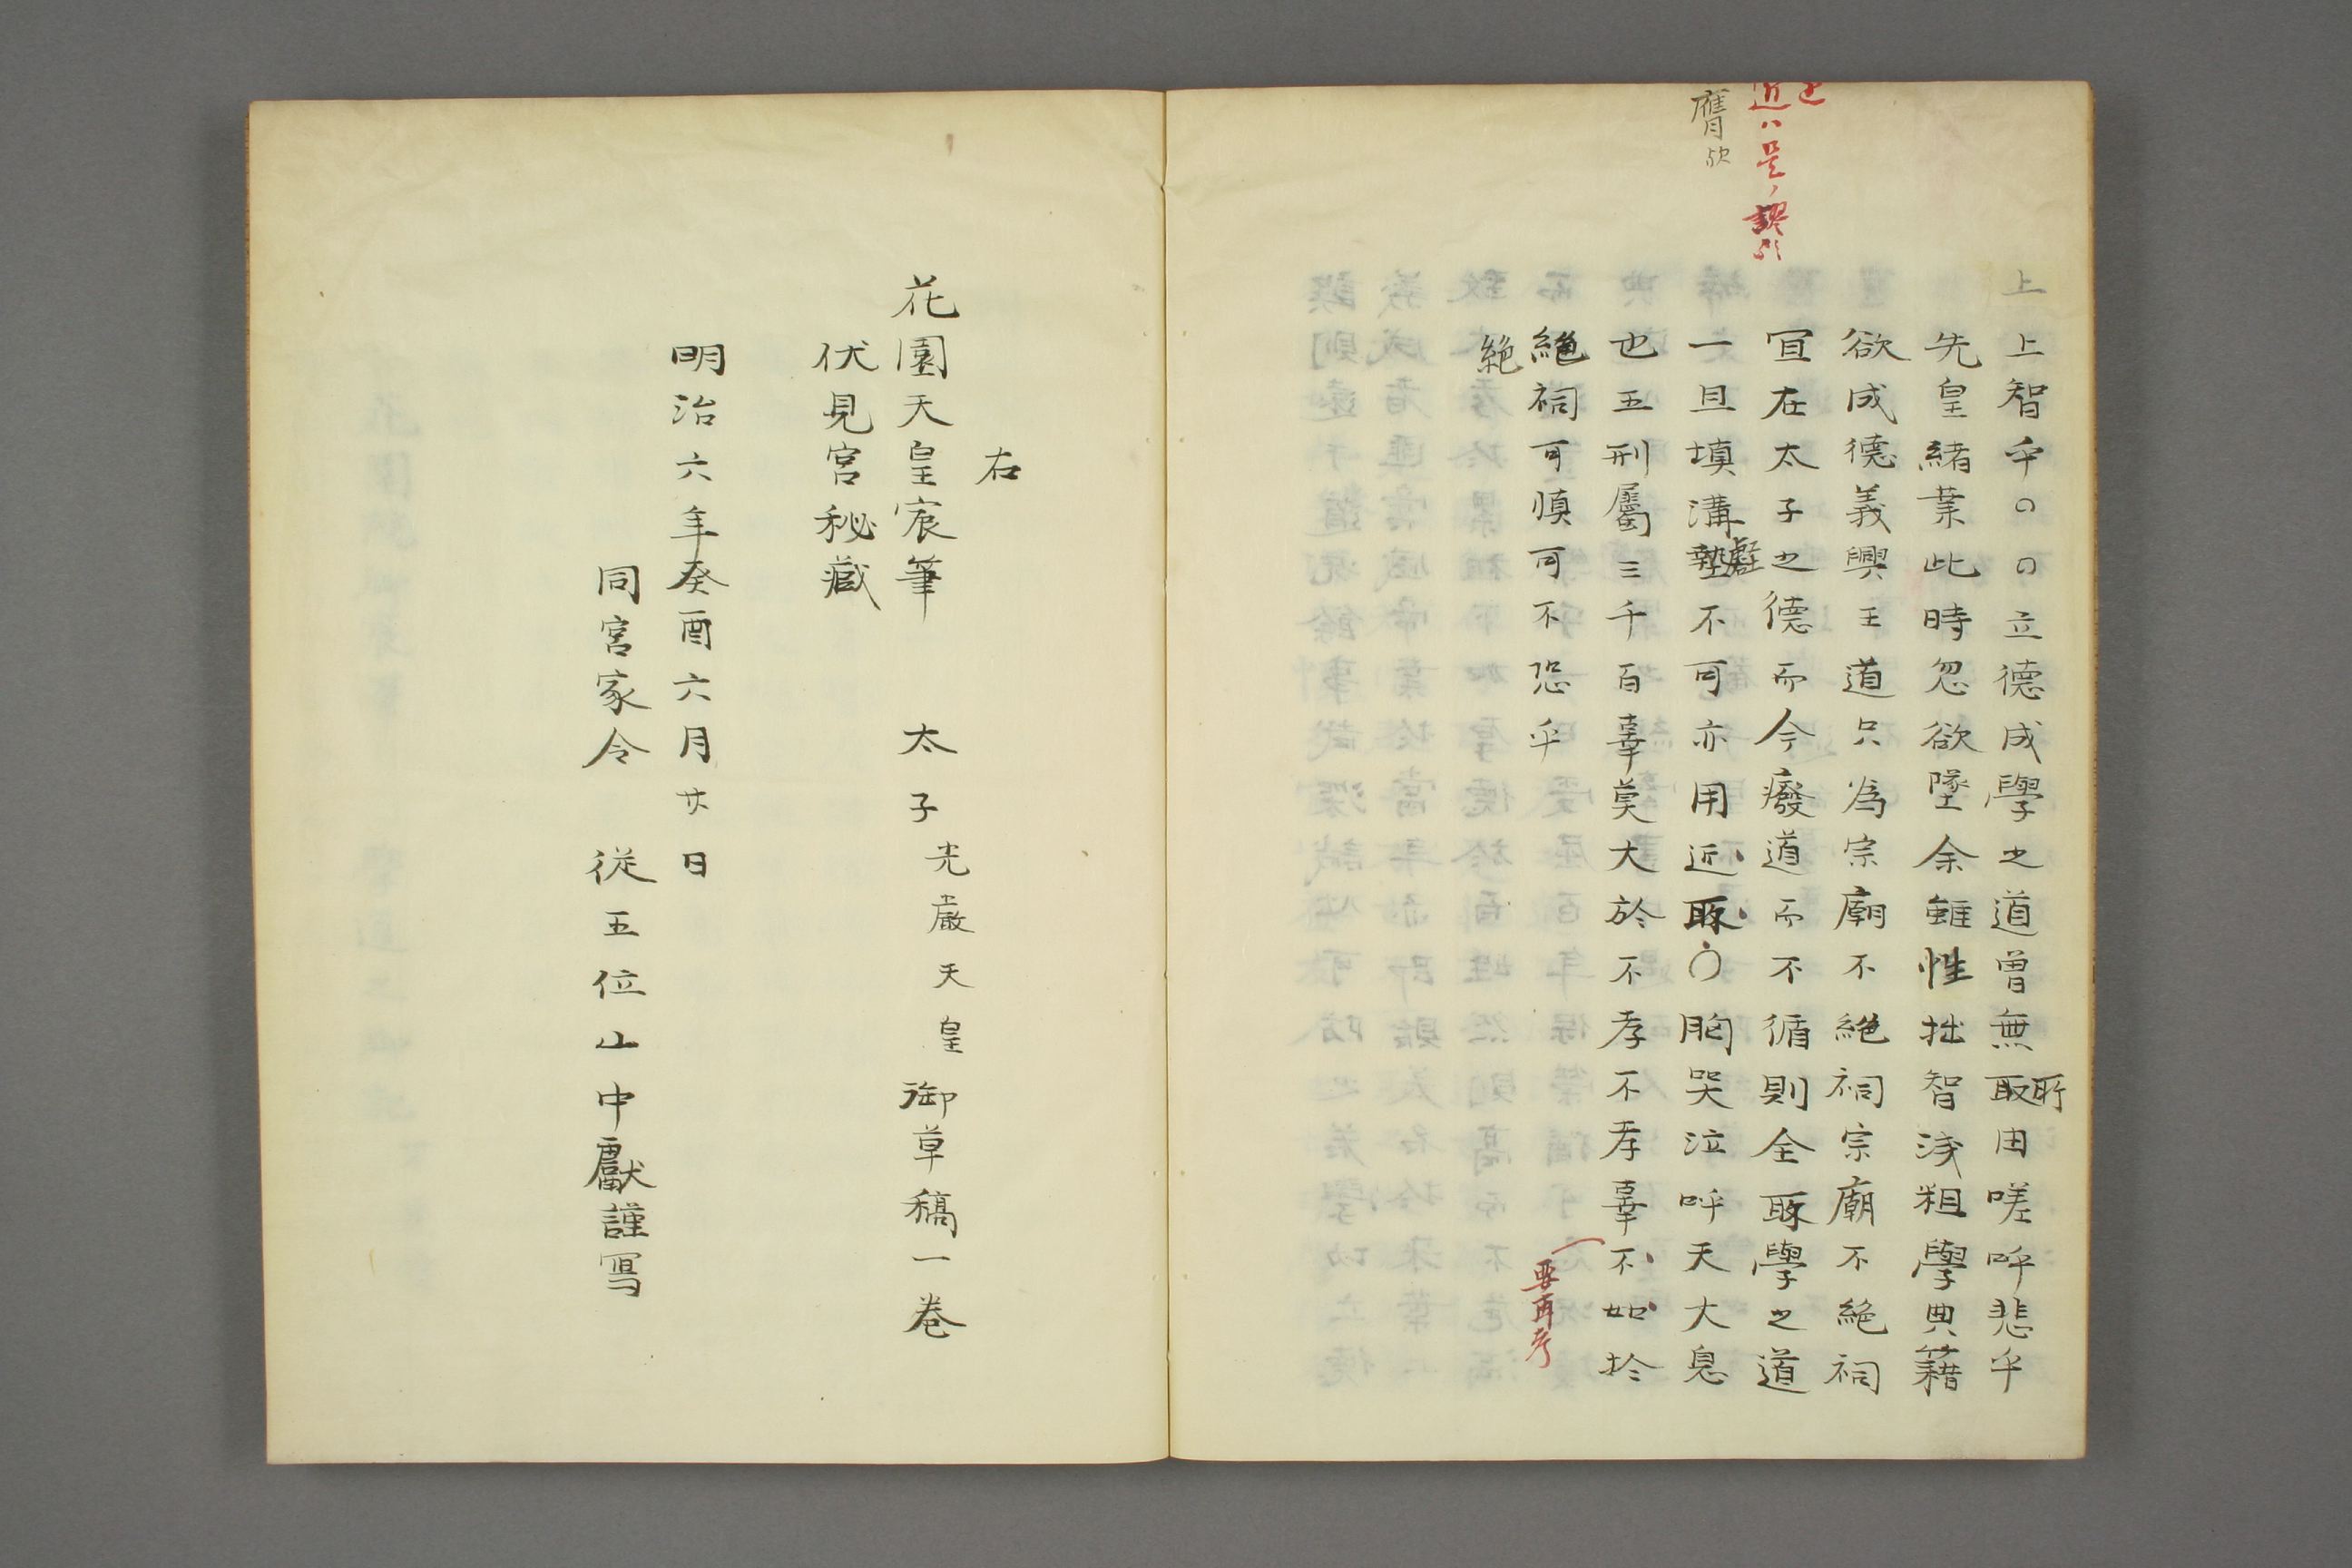 上上智乎のの立德成學之道曽無取用嗟呼悲乎
所
先皇緒業此時忽欲墜余雖性拙智淺粗學典籍
欲成德義興王道只為宗廟不絶祀宗廟不絶祀
宜在太子之德而今癈道而不循則全所學之道
一旦填溝壑不可亦用近所〇胸哭泣呼天大息
壑
也五刑屬三千百辜莫大於不孝不孝辜不如於
絶祠可慎可不恐乎
絶
近ハ是ノ謬歟
膺欤
要再考
右
花園天皇宸筆 太子光嚴天皇御草稿一巻
伏見宮秘藏
明治六年癸酉六月廿日
同宮家令 従五位山中獻謹寫